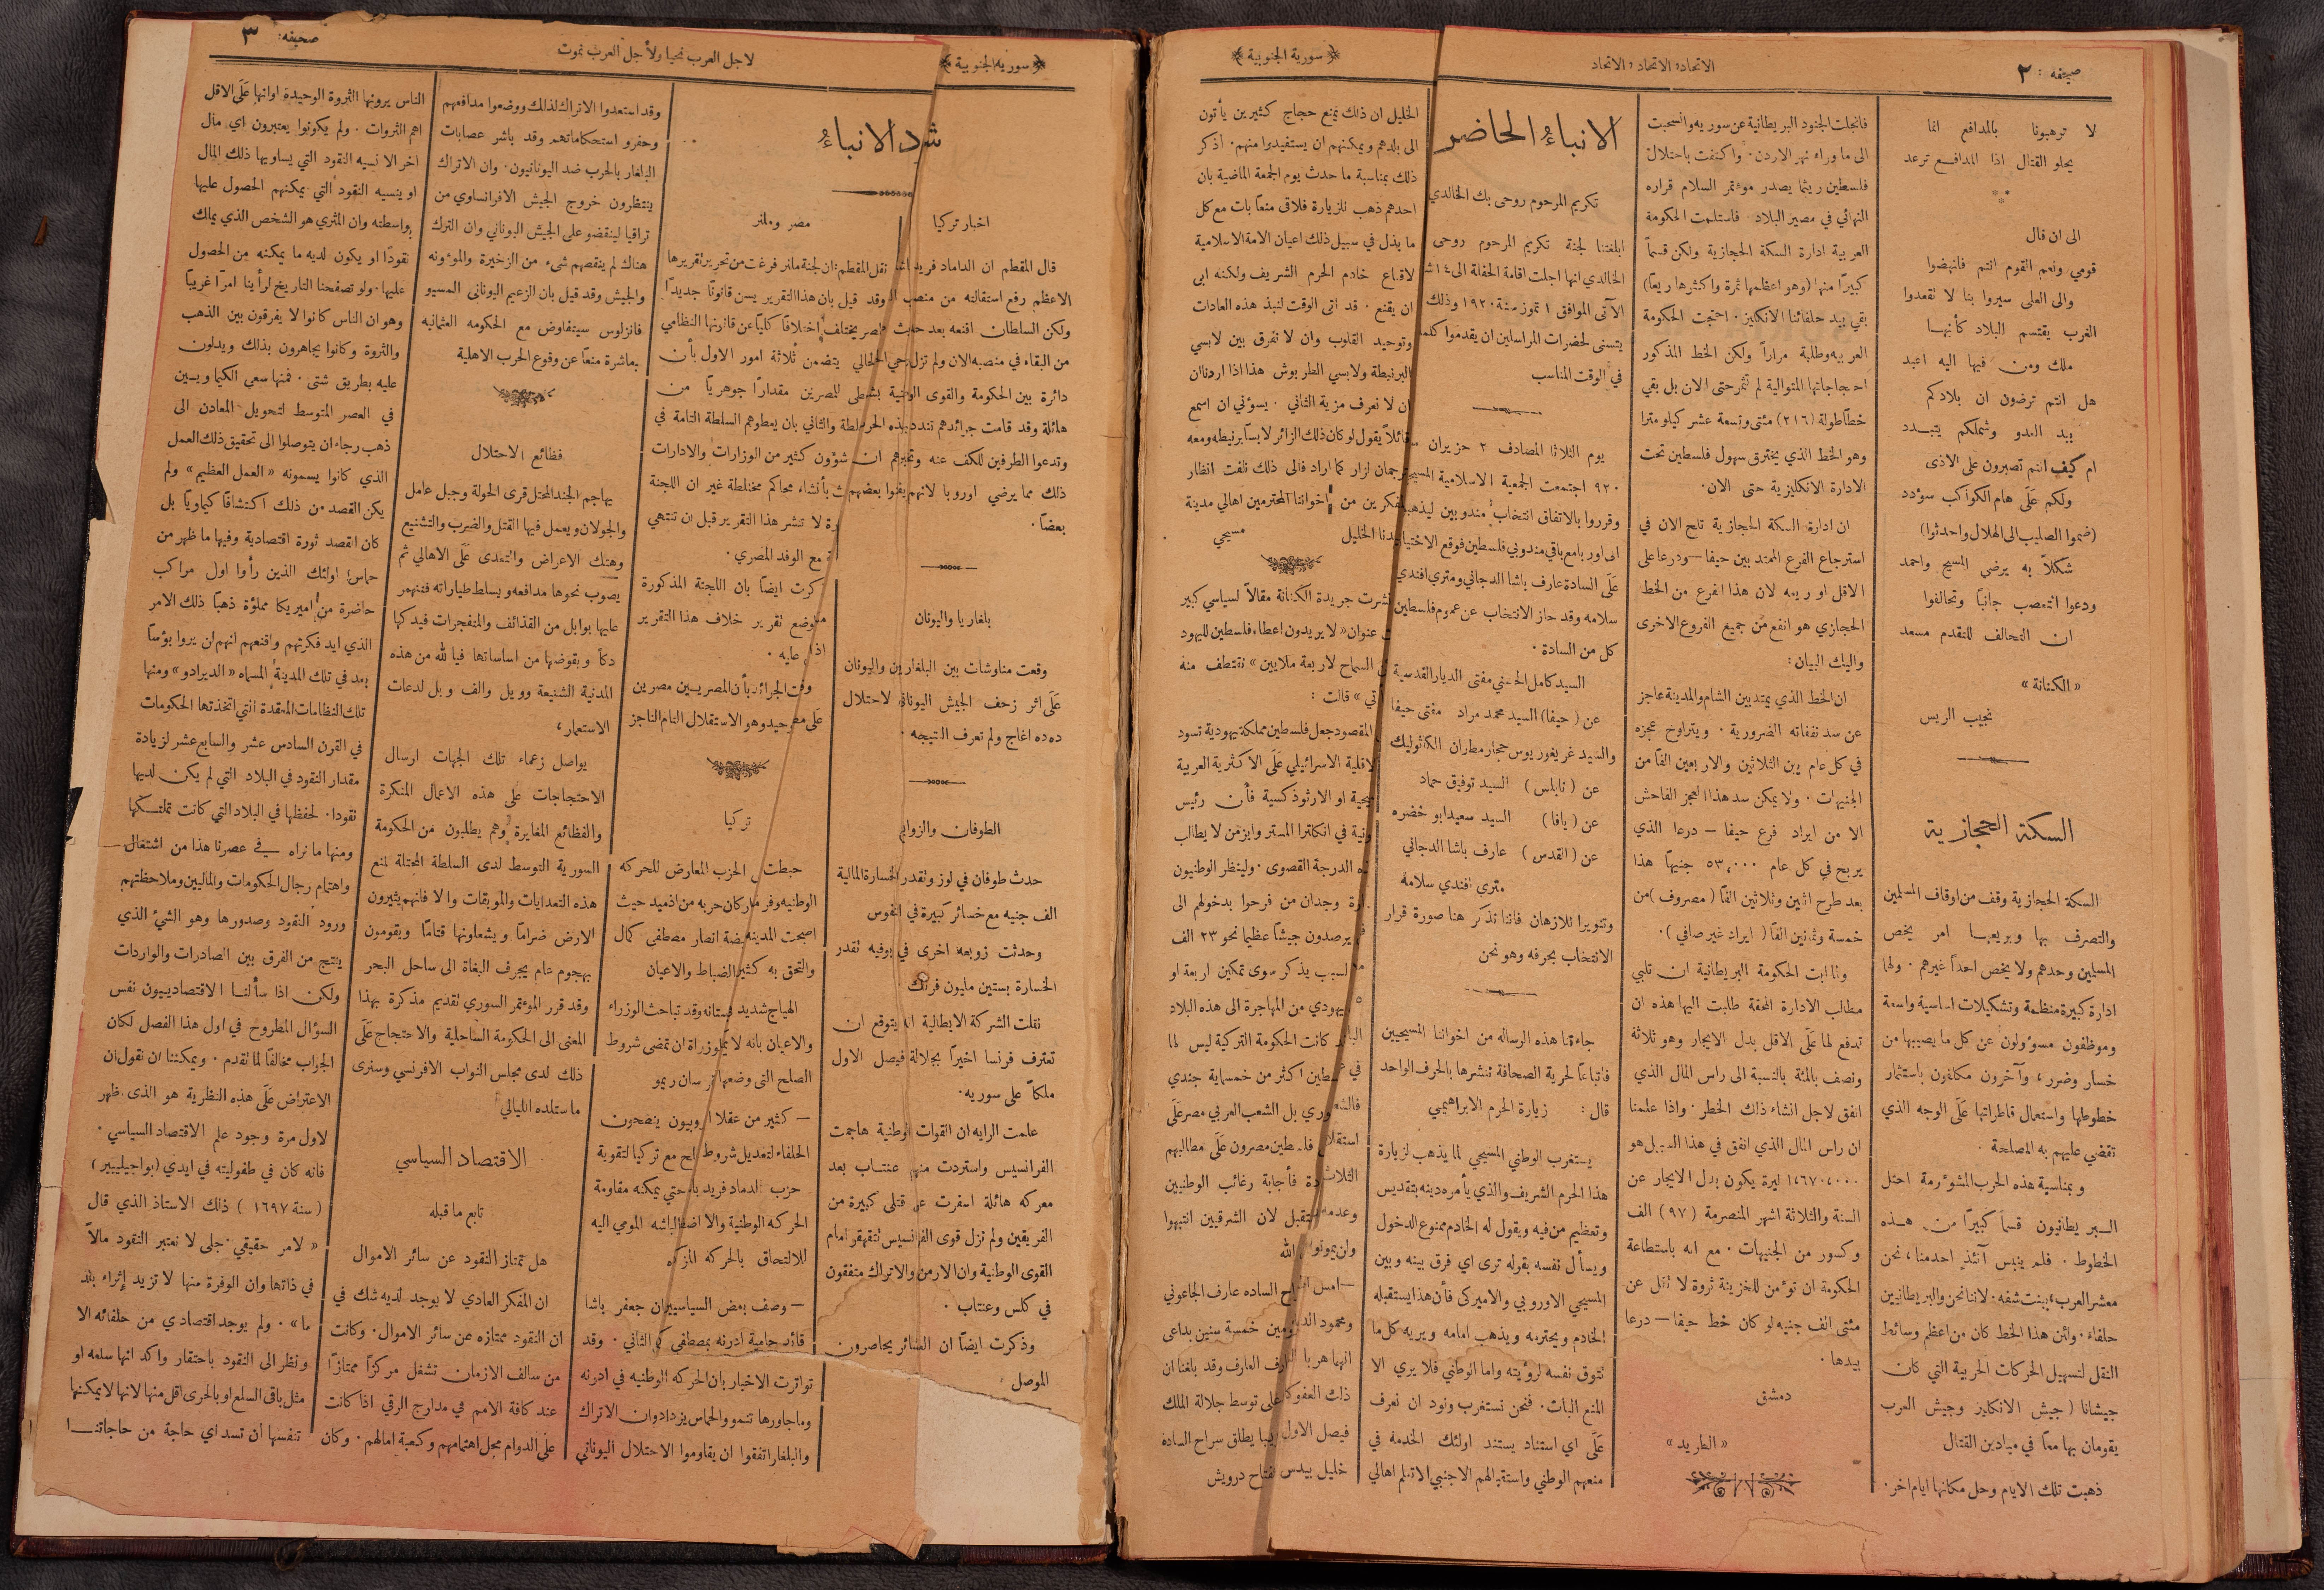 صحيفه: ٢
الاتحاد، الاتحاد، الاتحاد
﴿سورية الجنوبية﴾
لا ترهبونا بالمدافع انما
يحلو القتال اذا المدافع ترعد
الى ان قال
قومي ونعم القوم انتم فانهضوا
والى العلى سيروا بنا لا تقعدوا
الغرب يقتسم البلاد كأنها
ملك ومن فيها اليه اعبد
هل انتم ترضون ان بلادكم
بيد العدو وشملكم يتبدد
ام كيف انتم تصبرون على الاذى
ولكم عَلَى هام الكواكب سؤدد
(ضموا الصليب الى الهلال واحدثوا)
شكلاً به يرضي المسيح واحمد
ودعوا التعصب جانباً وتحالفوا
ان التحالف للتقدم مسعد
«الكنانة»
نجيب الريس
السكة الحجازية
السكة الحجازية وقف من اوقاف المسلمين
والتصرف بها وبريعها امر يخص
المسلمين وحدهم ولا يخص احداً غيرهم. ولها
ادارة كبيرة منظمة وتشكيلات اساسية واسعة
وموظفون مسؤولون عن كل ما يصيبها من
خسار وضرر، وآخرون مكلفون باستثمار
خطوطها واستعمال قاطراتها عَلَى الوجه الذي
تقضي عليهم به المصلحة.
وبمناسبة هذه الحرب المشؤمة احتل
البريطانيون قسماً كبيراً من هذه
الخطوط. فلم ينبس آنئذٍ احدمنا، نحن
معشر العرب، ببنت شفه. لاننا نحن والبريطانيين
حلفاء. ولئن هذا الخط كان من اعظم وسائط
النقل لتسهيل الحركات الحربية التي كان
جيشانا (جيش الانكليز وجيش العرب
يقومان بها معاً في ميادين القتال
ذهبت تلك الايام وحل مكانها ايام اخر.
فانجلت الجنود البريطانية عن سوريه وانسحبت
الى ما وراء نهر الاردن. واكتفت باحتلال
فلسطين ريثما يصدر مؤتمر السلام قراره
النهائي في مصير البلاد فاستلمت الحكومة
العربية ادارة السكة الحجازية ولكن قسماً
كبيرًا منها (وهو اعظمها ثمرة واكثرها ريعًا)
بقي بيد حلفائنا الانكليز. احتجت الحكومة
العربيه وطلبة مراراً ولكن الخط المذكور
احتجاجاتها المتوالية لم تثمر حتى الان بل بقي
خطًا طوله (٢١٦) مئتى وتسعة عشر كيلو مترا
وهو الخط الذي يخترق سهول فلسطين تحت
الادارة الانكليزية حتى الان.
ان ادارة السكة الحجازية تلح الان في
استرجاع الفرع الممتد بين حيفا—ودرعا على
الاقل او ريعه لان هذا الفرع من الخط
الحجازي هو انفع من جميع الفروع الاخرى
واليك البيان:
ان الخط الذي يمتد بين الشام والمدينة عاجز
عن سد نفقاته الضرورية. ويتراوح عجزه
في كل عام بين الثلاثين والاربعين الفاً من
الجنيهات. ولا يمكن سد هذا العجز الفاحش
الا من ايراد فرع حيفا — درعا الذي
يربح في كل عام ٥٣،٠٠٠ جنيهاً هذا
بعد طرح اثنين وثلاثين الفاً (مصروف) من
خمسة وثمانين الفاً (ايراد غير صافي).
ولما ابت الحكومة البريطانية ان تلبي
مطالب الادارة المحقة طلبت اليها هذه ان
تدفع لها عَلَى الاقل بدل الايجار وهو ثلاثة
ونصف بالمئة بالنسبة الى راس المال الذي
انفق لاجل انشاء ذلك الخطر. واذا علمنا
ان راس المال الذي انفق في هذا السبيل هو
١،٦٧٠،٠٠٠ ليرة يكون بدل الايجار عن
السنة والثلاثة اشهر المنصرمة (٩٧) الف
وكسور من الجنيهات. مع انه باستطاعة
الحكومه ان تؤمن للخزينة ثروة لا تقل عن
مئتى الف جنيه لو كان خط حيفا—درعا
بيدها.
دمشق
«الطريد»
الانباء الحاضر
تكريم المرحوم روحى بك الخالدي
ابلغتنا لجنة تكريم المرحوم روحى
الخالدي انها اجلت اقامة الحفلة الى ١٤
الآتى الموافق ١ تموز سنة ١٩٢٠ وذلك
يتسنى لحضرات المراسلين ان يقدموا
في الوقت المناسب
يوم الثلاثا المصادف ٢ حزيران
٩٢٠ اجتمعت الجمعية الاسلامية المسيحية
وقرروا بالاتفاق انتخاب مندوبين
الى اوربا مع باقي مندوبي فلسطين فوقع الاختيار
عَلَى السادة عارف باشا الدجاني ومتري افندي
سلامه وقد حاز الانتخاب عن عموم فلسطين
كل من السادة.
السيد كامل الحسيني مفتى الديار القدسية
عن (حيفا) السيد محمد مراد مفتى حيفا
والسيد غريغوريوس حجار مطران الكاثوليك
عن (نابلس) السيد توفيق حماد
عن (يافا) السيد سعيد ابو خضره
عن (القدس) عارف باشا الدجاني
متري افندي سلامه
وتنويرا للاذهان فاننا نذكر هنا صورة قرار
الانتخاب بحرفه وهو نحن
جاءتنا هذه الرساله من اخواننا المسيحيين
فاتباعًا لحرية الصحافة ننشرها بالحرف الواحد
قال: زيارة الحرم الابراهيمي
يستغرب الوطني المسيحي لما يذهب لزيارة
هذا الحرم الشريف والذي يأمره دينه بتقديس
وتعظيم من فيه ويقول له الخادم ممنوع الدخول
ويسأل نفسه بقوله ترى اي فرق بينه وبين
المسيحي الاوروبي والاميركى فأن هذا يستقبله
الخادم ويحترمه ويذهب امامه ويريه كل ما
تتوق نفسه لرؤيته واما الوطني فلا يري الا
المنع البات. فنحن نستغرب ونود ان نعرف
عَلَى اي استناد يستند اولئك الخدمة في
منعهم الوطني واستقبالهم الاجنبي الا تعلم اهالي
الخليل ان ذلك يمنع حجاج كثيرين يأتون
الى بلدهم ويمكنهم ان يستفيدوا منهم. اذكر
ذلك بمناسبة ما حدث يوم الجمعة الماضية بان
احدهم ذهب للزيارة فلاقى منعًا بات مع كل
ما بذل في سبيل ذلك اعيان الامة الاسلامية
لاقناع خادم الحرم الشريف ولكنه ابى
ان يقنع. قد اتى الوقت لنبذ هذه العادات
وتوحيد القلوب وان لا نفرق بين لابسي
البرنيطة ولابسي الطربوش هذا اذا اردناان
ان لا نعرف مزية الثاني. يسؤني ان اسمع
قائلاً يقول لو كان ذلك الزائر لابساً برنيطه ومعه
ترجمان لزار كما اراد فالى ذلك نلفت انظار
المفكرين من اخواننا المحترمين اهالي مدينة
الخليل
مسيحي
نشرت جريدة الكنانة مقالاً لسياسي كبير
عنوان «لا يريدون اعطاء فلسطين لليهود
السماح لاربعة ملايين» نقتطف منه
قالت:
المقصود جعل فلسطين مملكة يهودية تسود
الاقلية الاسرائيلي عَلَى الاكثرية العربية
او الارثوذكسية فأن رئيس
في انكلترا المستر وايزمن لا يطالب
الدرجة القصوى. ولينظر الوطنيون
وجدان من فرحوا بدخولهم الى
يرصدون جيشاً عظيما نحو ٢٣ الف
السبب يذكر سوى تمكين اربعة او
يهودي من المهاجرة الى هذه البلاد
كانت الحكومة التركية ليس لها
في فلسطين اكثر من خمسماية جندي
بل الشعب العربي مصر عَلَى
استقلال فلسطين مصرون عَلَى مطالبهم
فأجابة رغائب الوطنيين
لان الشرقيين انتبهوا
الله
—امس السادة عارف الجاعوني
ومحمود خمسة سنين بداعى
انهما هربا العارف وقد بلغنا ان
ذلك العفو كان على توسط جلالة الملك
فيصل الاول يطلق سراح السادة
خليل بيدس درويش
﴿سورية الجنوبية﴾
لاجل العرب نحيا ولأجل العرب نموت
صحيفه: ٣
شرد الانباء
اخبار تركيا
قال المقطم ان الداماد فريد باشا
الاعظم رفع استقالته من منصب
ولكن السلطان اقنعه بعد حديث
من البقاء في منصبه الان ولم تزل رحي
دائرة بين الحكومة والقوى الوطنية
هائلة وقد قامت جرائدهم تندد بهذه الحرب
وتدعوا الطرفين للكف عنه وتخبرهم ان
ذلك مما يرضي اوروبا لانهم بعضهم
بعضاً.
بلغاريا واليونان
وقعت مناوشات بين البلغاريين واليونان
عَلَى اثر زحف الجيش اليونانى لاحتلال
دهده اغاج ولم تعرف النتيجه.
الطوفان والزوابع
حدث طوفان في لوز وتقدر الخسارة المالية
الف جنيه مع خسائر كبيرة في النفوس
وحدثت زوبعه اخرى في بوفيه تقدر
الخسارة بستين مليون فرنك
نقلت الشركة الايطالية انه يتوقع ان
تعترف فرنسا اخيراً بجلالة فيصل الاول
ملكاً على سوريه.
علمت الرايه ان القوات الوطنية هاجمت
الفرانسيس واستردت منهم عنتاب بعد
معركه هائلة اسفرت عن قتلى كبيرة من
الفريقين ولم تزل قوى الفرانسيس تتقهقر امام
القوى الوطنية وان الارمن والاتراك متفقون
في كلس وعنتاب.
وذكرت ايضًا ان العشائر يحاصرون.
الموصل
مصر وملنر
نقل المقطم: ان لجنة ملنر فرغت من تحرير تقريرها
وقد قيل بان هذا التقرير يسن قانونًا جديدًا
لمصر يختلف اختلافًا كليًا عن قانونها النظامي
الحالي يتضمن ثلاثة امور الاول بأن
يعطى للمصرين مقدارًا جوهريًا من
السلطة والثاني بان يعطوهم السلطة التامة في
شؤون كثير من الوزارات والادارات
بأنشاء محاكم مختلطة غير ان اللجنة
لا تنشر هذا التقرير قبل ان تنتهي
مع الوفد المصري.
ذكرت ايضًا بان اللجنة المذكورة
ستوضع تقرير خلاف هذا التقرير
عليه.
الجرائد بأن المصريين مصرين
عَلَى وهو الاستقلال التام الناجز
تركيا
حبطت الحزب المعارض للحركه
الوطنيه وفر اركان حربه من اذميد حيث
اصبحت المدينة بقبضة انصار مصطفى كمال
والتحق به كثير الضباط والاعيان
الهياج شديد وقد تباحث الوزراء
والاعيان بانه لا يمكن لوزارة ان تمضى شروط
الصلح التى وضعها سان ريمو
— كثير من عقلا الاوروبيون ينصحون
الحلفاء لتعديل شروط الصلح مع تركيا لتقوية
حزب الدماد فريد باشا حتي يمكنه مقاومة
الحركه الوطنية والا اضطر الباشه المومي اليه
للالتحاق بالحركه المذكره
— وصف بعض السياسيين ان جعفر باشا
قائد حامية ادرنه بمصطفى كمال الثاني. وقد
تواترت الاخبار بان الحركه الوطنيه في ادرنه
وما جاورها تنمو والحماس يزداد وان الاتراك
والبلغار اتفقوا ان يقاوموا الاحتلال اليوناني
وقد استعدوا الاتراك لذالك ووضعوا مدافعهم
وحفرو استحكاماتهم وقد باشر عصابات
البلغار بالحرب ضد اليونانيون. وان الاتراك
ينتظرون خروج الجيش الافرانساوي من
تراقيا لينقضو على الجيش اليوناني وان الترك
هناك لم ينقصهم شيء من الذخيرة والمؤونه
والجيش وقد قيل بان الزعيم اليونانى المسيو
فانزلوس سيتفاوض مع الحكومه العثمانيه
بعاشرة منعًا عن وقوع الحرب الاهلية
فظائع الاحتلال
يهاجم الجند المحتل قرى الحولة وجبل عامل
والجولان ويعمل فيها القتل والضرب والتشنيع
وهتك الاعراض والتعدى عَلَى الاهالي ثم
يصوب نحوها مدافعه ويسلط طياراته فتنهمر
عليها بوابل من القذائف والمنفجرات فيدكها
دكاً ويقوضها من اساساتها فيا لله من هذه
المدنية الشنيعة وويل والف ويل لدعات
الاستعمار،
يواصل زعماء تلك الجهات ارسال
الاحتجاجات على هذه الاعمال المنكرة
والفظائع المغايرة وهم يطلبون من الحكومة
السورية التوسط لدى السلطة المحتلة لمنع
هذه التعدايات والموبقات والا فانهم يثيرون
الارض ضرامًا ويشعلونها قتامًا ويقومون
بهجوم عام يجرف البغاة الى ساحل البحر
وقد قرر المؤتمر السوري تقديم مذكرة بهذا
المعنى الى الحكومة الساحلية والاحتجاج عَلَى
ذلك لدى مجلس النواب الافرنسي وسنرى
ما ستلده الليالي
الاقتصاد السياسي
تابع ما قبله
هل تمتاز النقود عن سائر الاموال
ان المفكر العادي لا يوجد لديه شك في
ان النقود ممتازه عن سائر الاموال. وكانت
من سالف الازمان تشغل مركزاً ممتازًا
عند كافة الامم في مدارج الرقي اذا كانت
على الدوام محل اهتمامهم وكعبة امالهم. وكان
الناس يرونها الثروة الوحيدة اوانها عَلَى الاقل
اهم الثروات. ولم يكونوا يعتبرون اي مال
اخر الا نسبه النقود التي يساويها ذلك المال
او بنسبه النقود التي يمكنهم الحصول عليها
بواسطته وان المثري هو الشخص الذي يملك
نقودًا او يكون لديه ما يمكنه من الحصول
عليها. ولو تصفحنا التاريخ لرأينا امرًا غريباً
وهو ان الناس كانوا لا يفرقون بين الذهب
والثروة وكانوا يجاهرون بذلك ويدلون
عليه بطريق شتى. فمنها سعي الكيماويين
في العصر المتوسط لتحويل المعادن الى
ذهب رجاء ان يتوصلوا الى تحقيق ذلك العمل
الذي كانوا يسمونه «العمل العظيم» ولم
يكن القصد من ذلك اكتشافًا كيماويًا بل
كان القصد ثورة اقتصادية وفيها ما ظهر من
حماس اولئك الذين رأوا اول مراكب
حاضرة من اميريكا مملؤة ذهباً ذلك الامر
الذي ايد فكرتهم واقنعهم انهم لن يروا بؤساً
بعد في تلك المدينة المسماه «الديرادو» ومنها
تلك النظامات المعقدة التي اتخذتها الحكومات
في القرن السادس عشر والسابع عشر لزيادة
مقدار النقود في البلاد التي لم يكن لديها
نقودا. لحفظها في البلاد التي كانت تمتلكها
ومنها ما نراه في عصرنا هذا من اشتغال
واهتمام رجال الحكومات والماليين وملاحظتهم
ورود النقود وصدورها وهو الشئ الذي
ينتج من الفرق بين الصادرات والواردات
ولكن اذا سألنا الاقتصاديون نفس
السؤال المطروح في اول هذا الفصل لكان
الجواب مخالفًا لما تقدم. ويمكننا ان نقول ان
الاعتراض عَلَى هذه النظرية هو الذى ظهر
لاول مرة وجود علم الاقتصاد السياسي.
فانه كان في طفوليته في ايدي (بواجيليبير)
(سنة ١٦٩٧) ذلك الاستاذ الذي قال
«لامر حقيقي جلى لا نعتبر النقود مالاً
في ذاتها وان الوفرة منها لا تزيد إثراء بلد
ما». ولم يوجد اقتصادي من خلفائه الا
ونظر الى النقود باحتقار واكد انها سلعه او
مثل باقى السلع او بالحرى اقل منها لانها لا يمكنها
تنفسها أن تسد اي حاجة من حاجاتنا